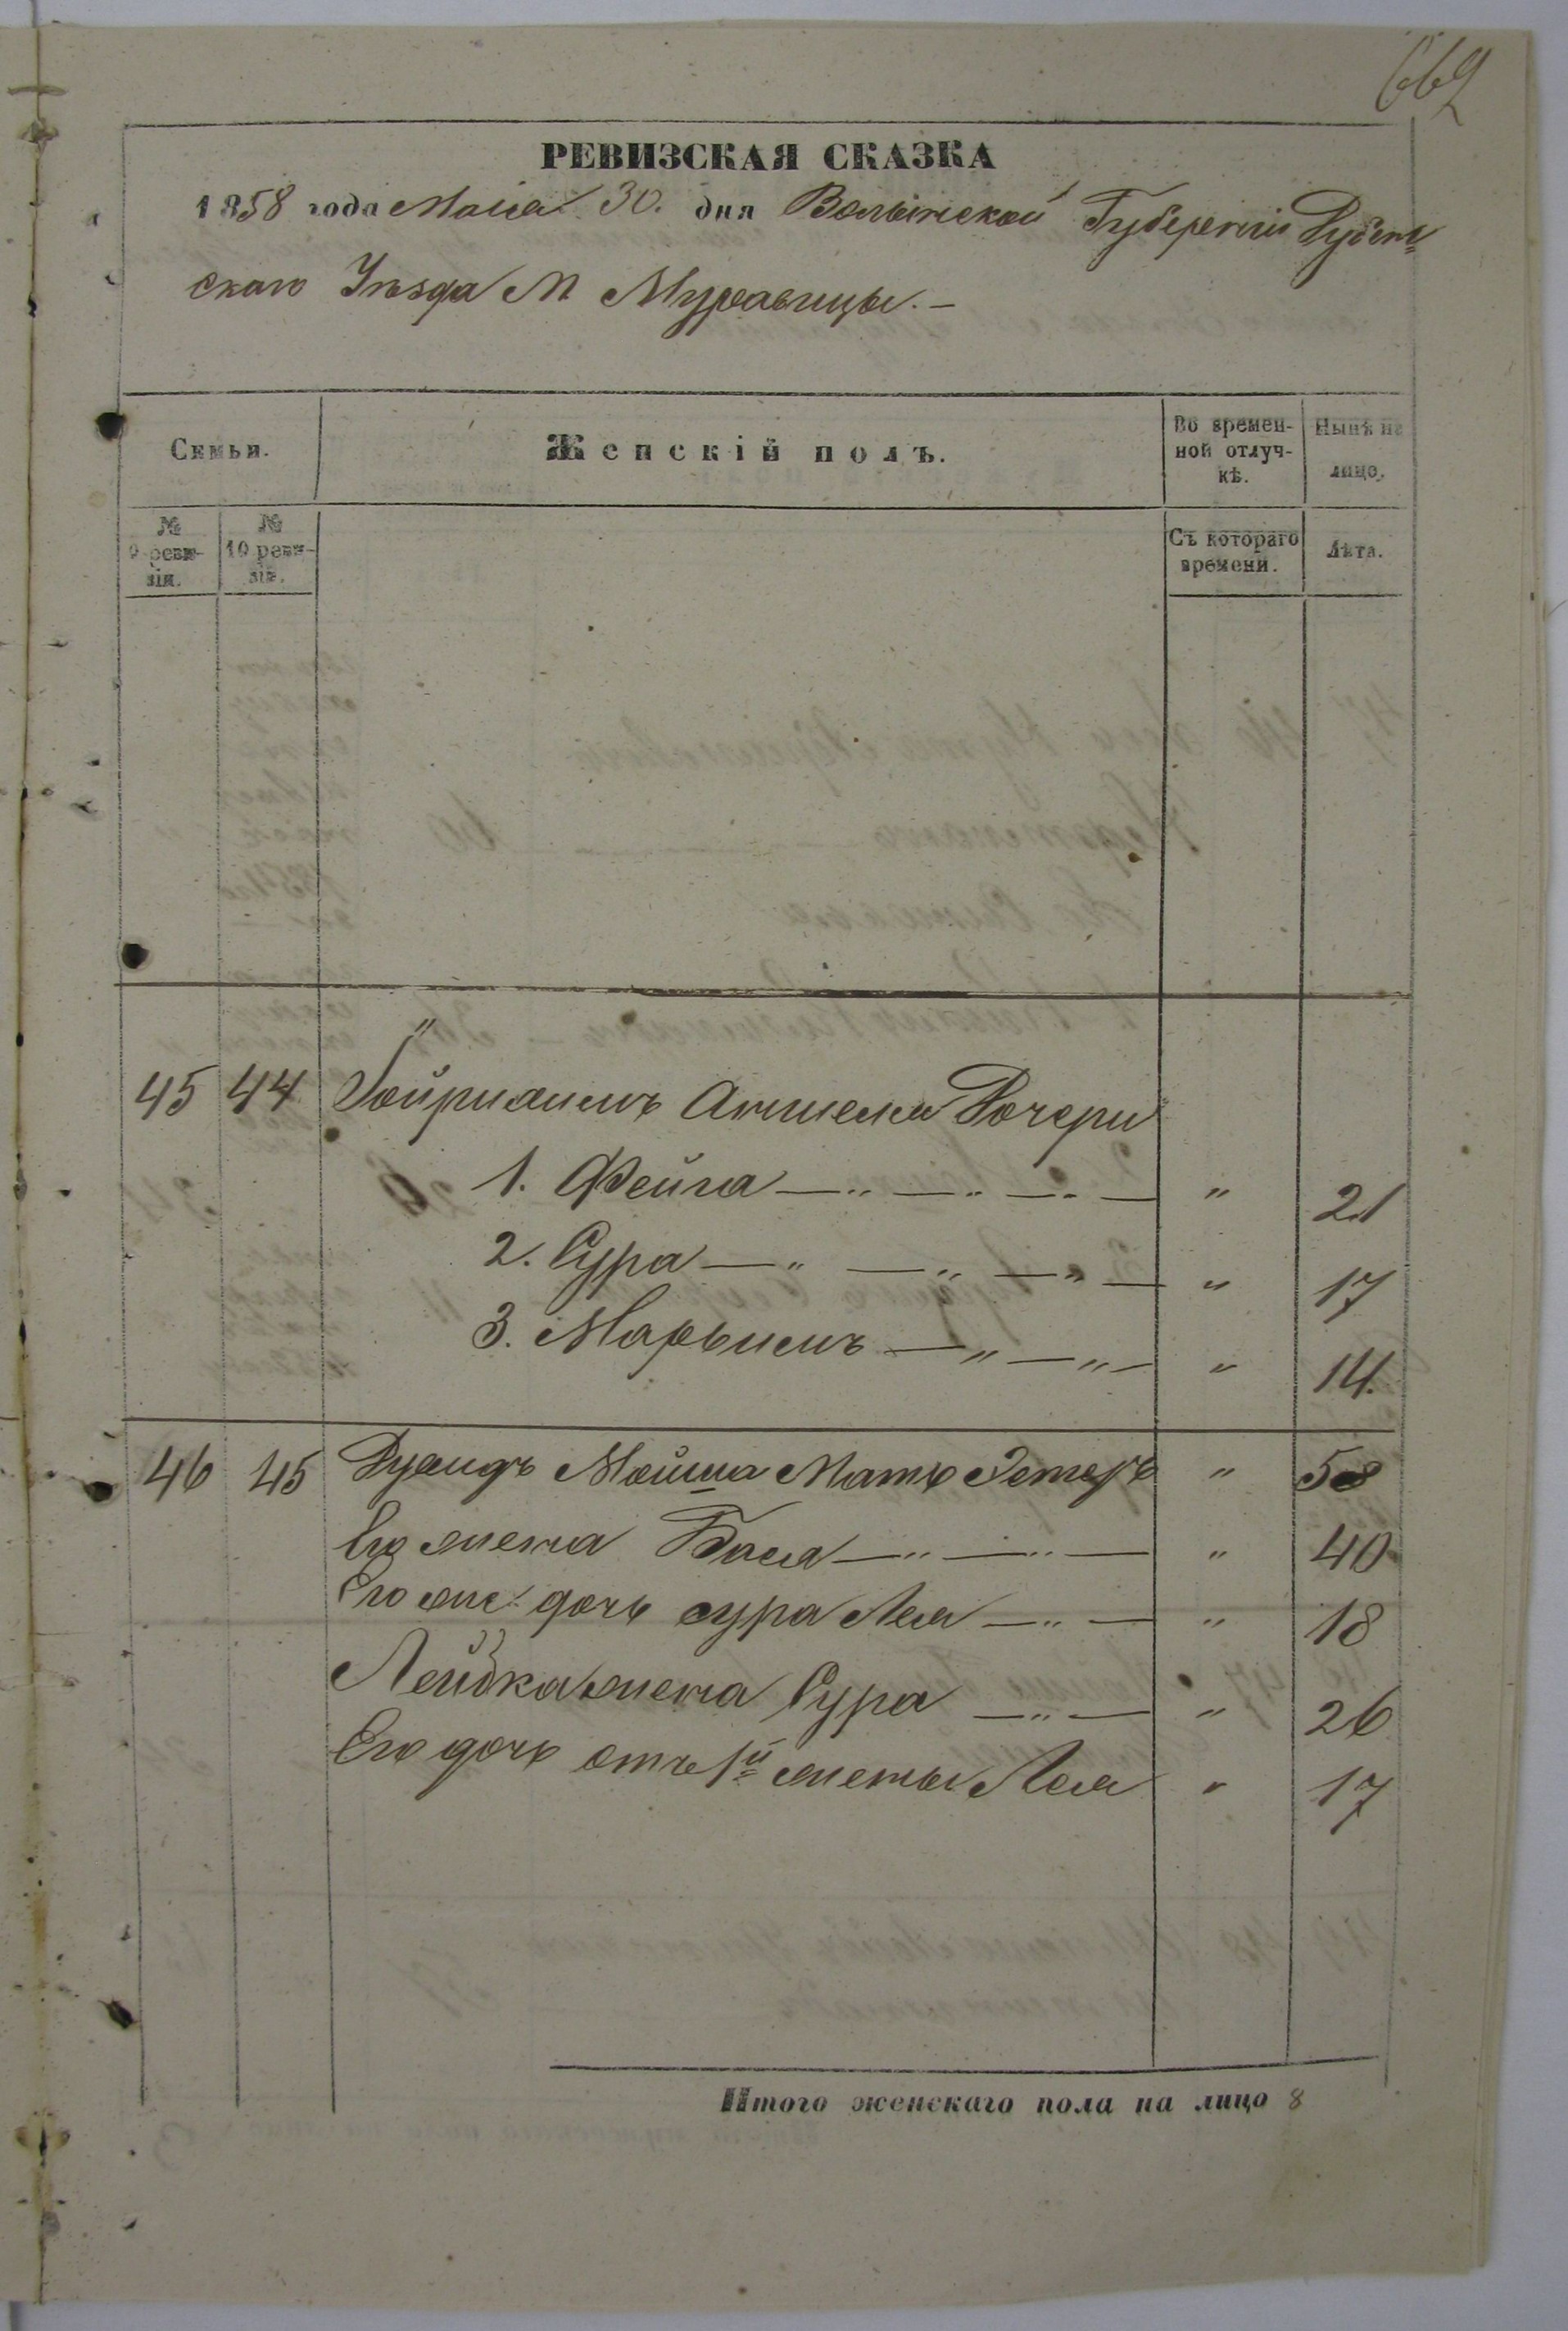 662
РЕВИЗСКАЯ СКАЗКА
1858 года Маiя 30. дня Волынской Губернiи Дубен=
скаго Уѣзда М Муравицы.–
Семьи.
Женскiй полъ.
Во времен-
ной отлуч-
кѣ.
Нынѣ на
лицо.
№
9 реви-
зiи.
№
10 реви-
зiи.
Съ котораго
времени.
Лѣта.
45 44 Аншеля Дочери
1. Фейга —„—„—„— „ 21
2. Сура —„ —„ —„— „ 17
3. Марьимъ —„—„— „ 14.
46 45 Мойша Мать Эстеръ „ 58
Его жена Бася —„—„— „ 40
Его же дочь сура Лея —„— „ 18
Лейбка жена Сура —„— „ 26
Его дочь отъ 1й жены Лея „ 17
Итого женскаго пола на лицо 8